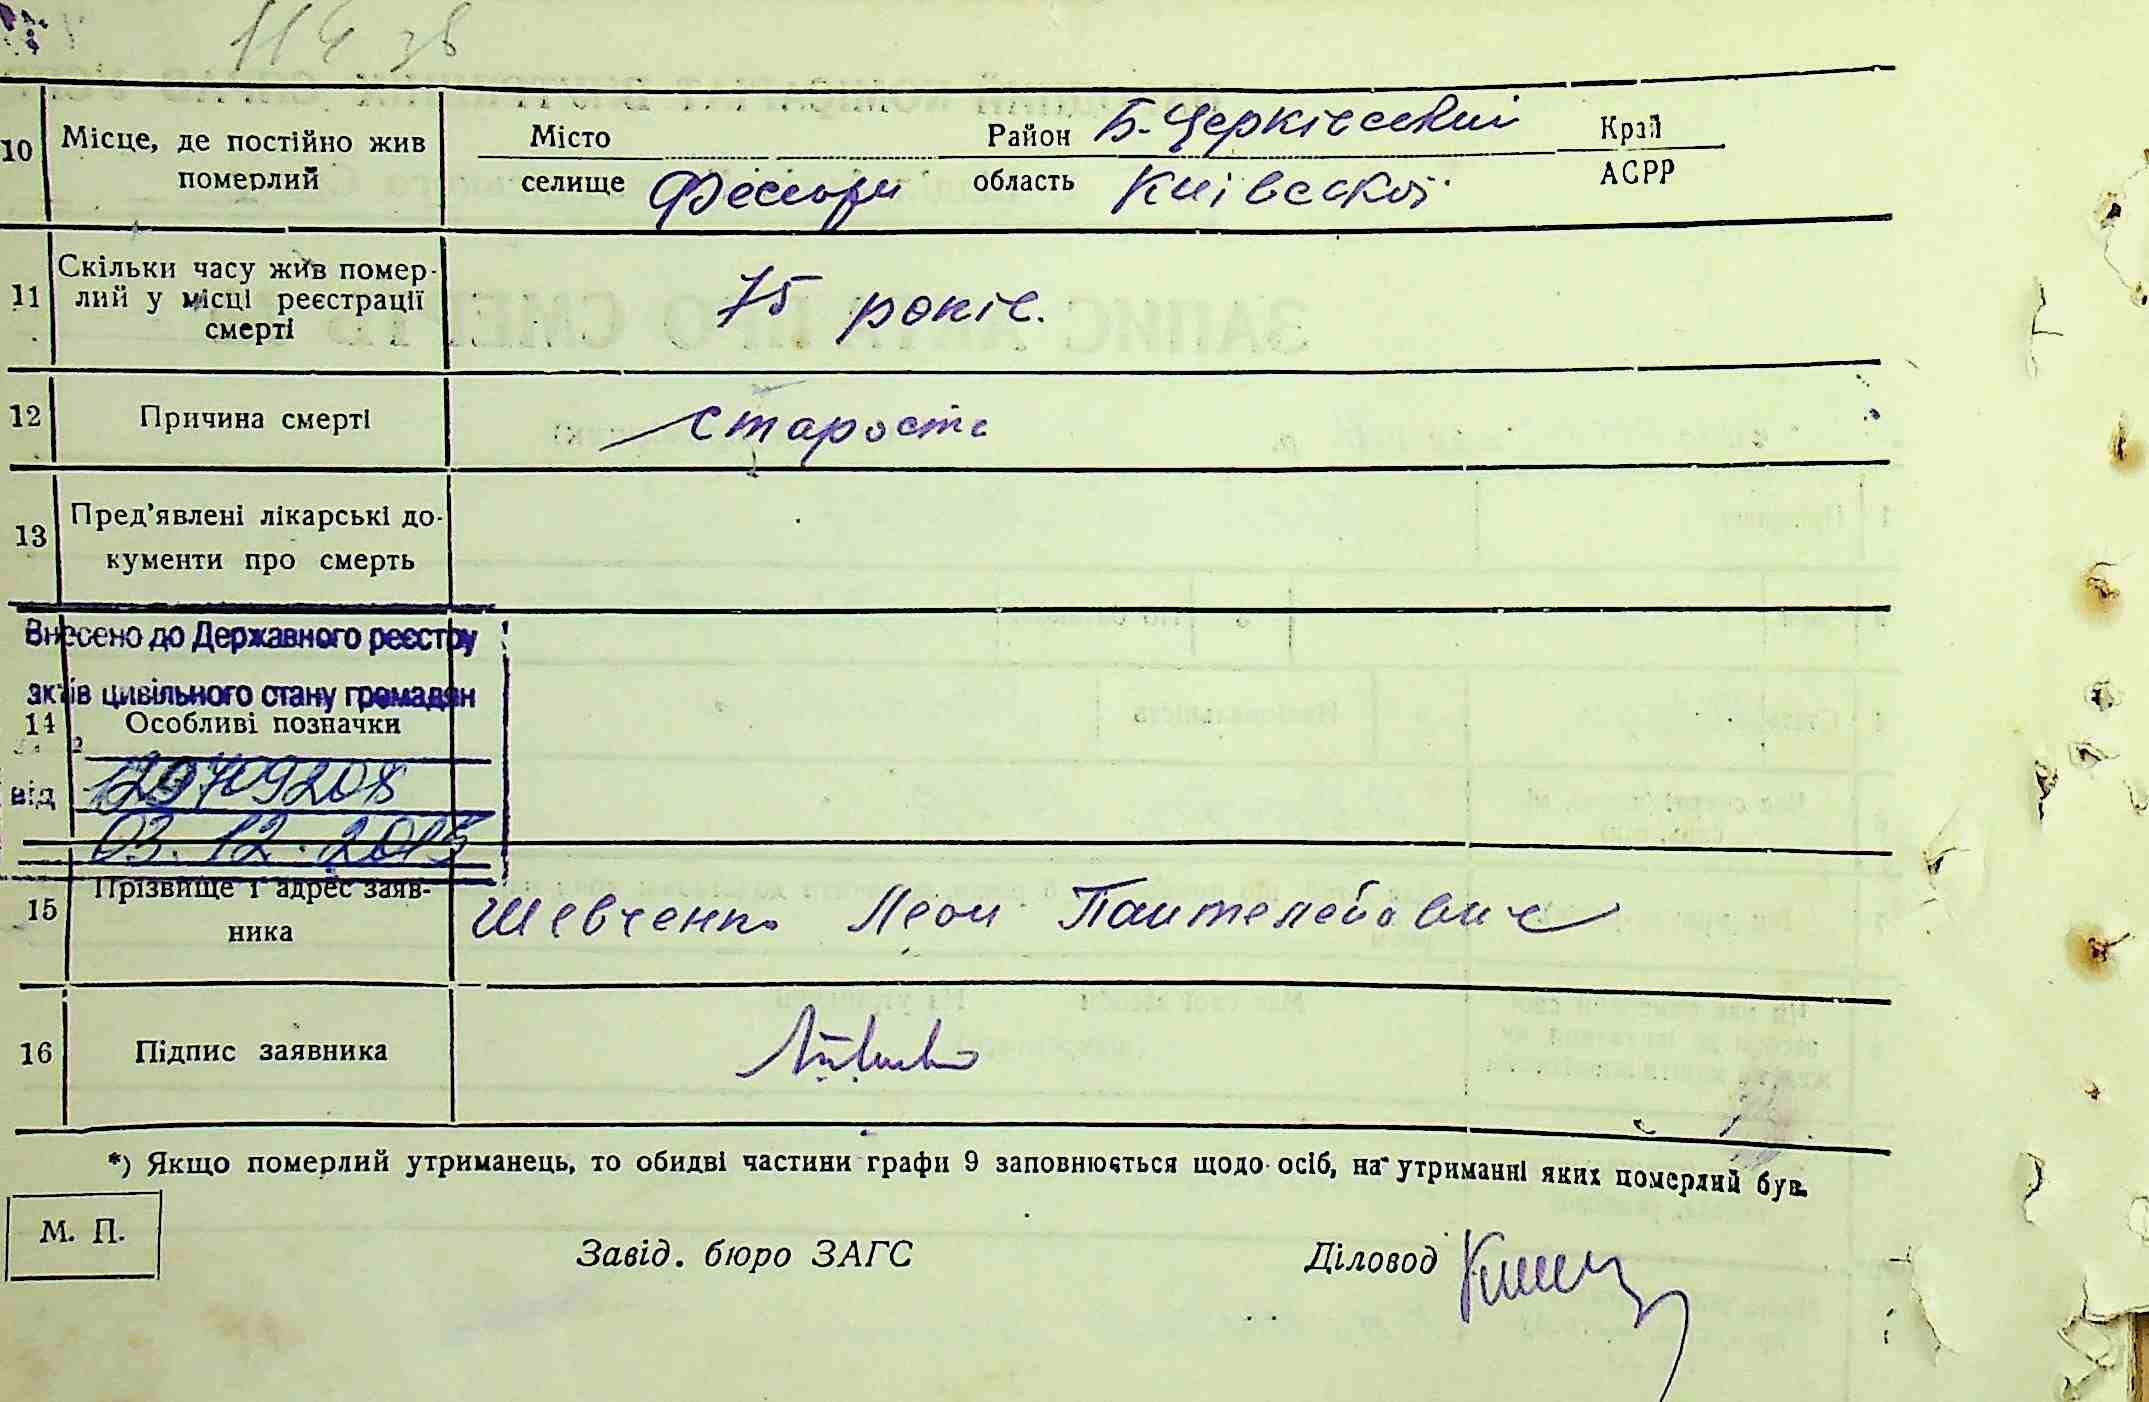 114 зв
10 Місце, де постійно жив Місто Район Б-Церківський Край
померлий селище Фесюри область Київської АСРР
11 Скільки часу жив помер-
лий у місці реєстрації
смерті
75 років.
12 Причина смерті старость
13 Пред'явлені лікарські до-
кументи про смерть
Внесено до Державного реєстру
актів цивільного стану громадян
14 Особливі позначки
від 03.12.2013
15 Прізвище і адрес заяв-
ника
Шевченко Леон Пантелейович
16 Підпис заявника
*) Якщо померлий утриманець, то обидві частини графи 9 заповнюється щодо осіб, на утриманні яких померлий був.
М. П.
Завід. бюро ЗАГС Діловод